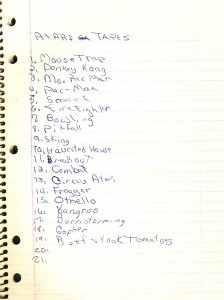 ATARI TAPES
1. Mouse Trap
2. Donkey Kong
3. Ms. Pac Man
4. Pac-Man
5.
6. Fire Fighter
7. Bowling
8. Pitfall
9. Skiing
10. Haunted House
11. Breakout
12. Combat
13. Circus Atari
14. Frogger
15. Othello
16. Kangroo
17. Barnstorming
18. Gopher
19. Tomatoes
20.
21.